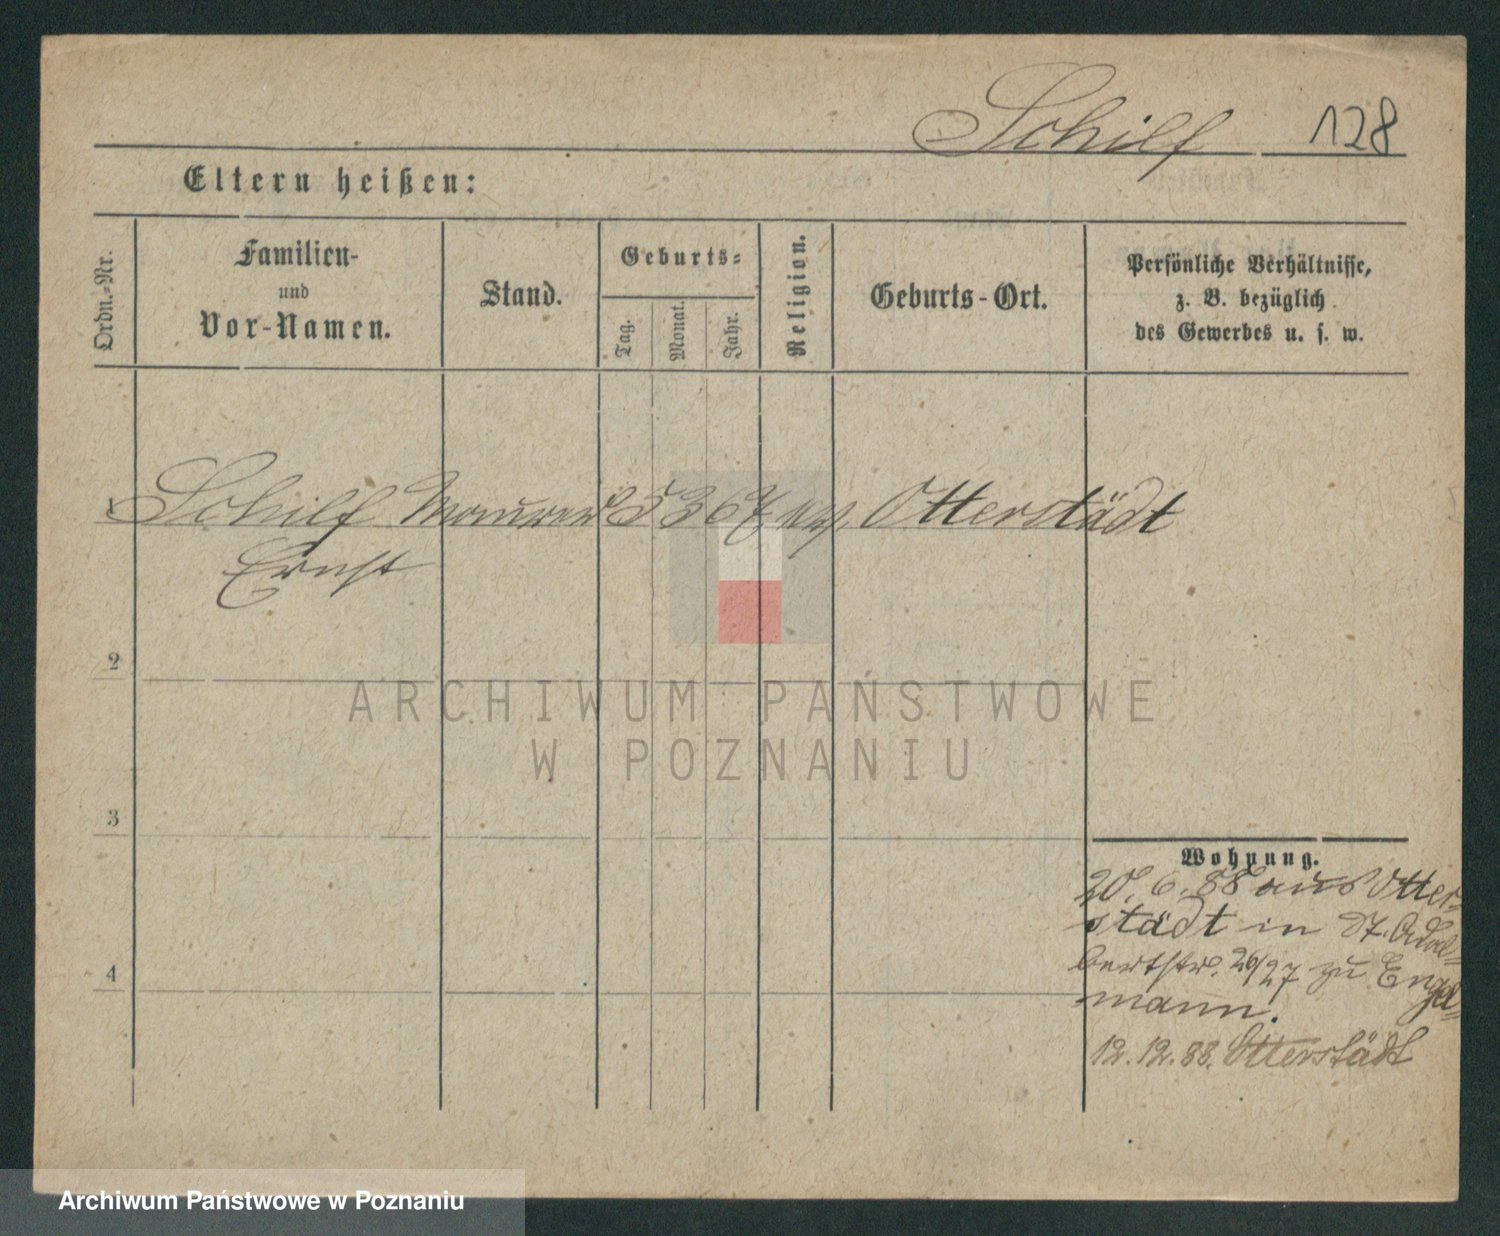 Schilf 128
Eltern heißen:
Ordn.-Nr.
Familien-
und
Vor-Namen.
Stand.
Geburts-
Tag.
Monat.
Jahr.
Religion.
Geburts-Ort.
Persönliche Verhältnisse,
z. B. bezüglich
des Gewerbes u. s. w.
1 Schilf Maurer 5 3 67 Otterstädt
Ernst
2
3
4
Wohnung.
20. 6. 88 aus Otter-
städt in 37. Adal-
bertstr. 26/27 zu Engel-
mann.
12. 12. 88. Otterstädt
ARCHIWUM PAŃSTWOWE
W POZNANIU
Archiwum Państwowe w Poznaniu